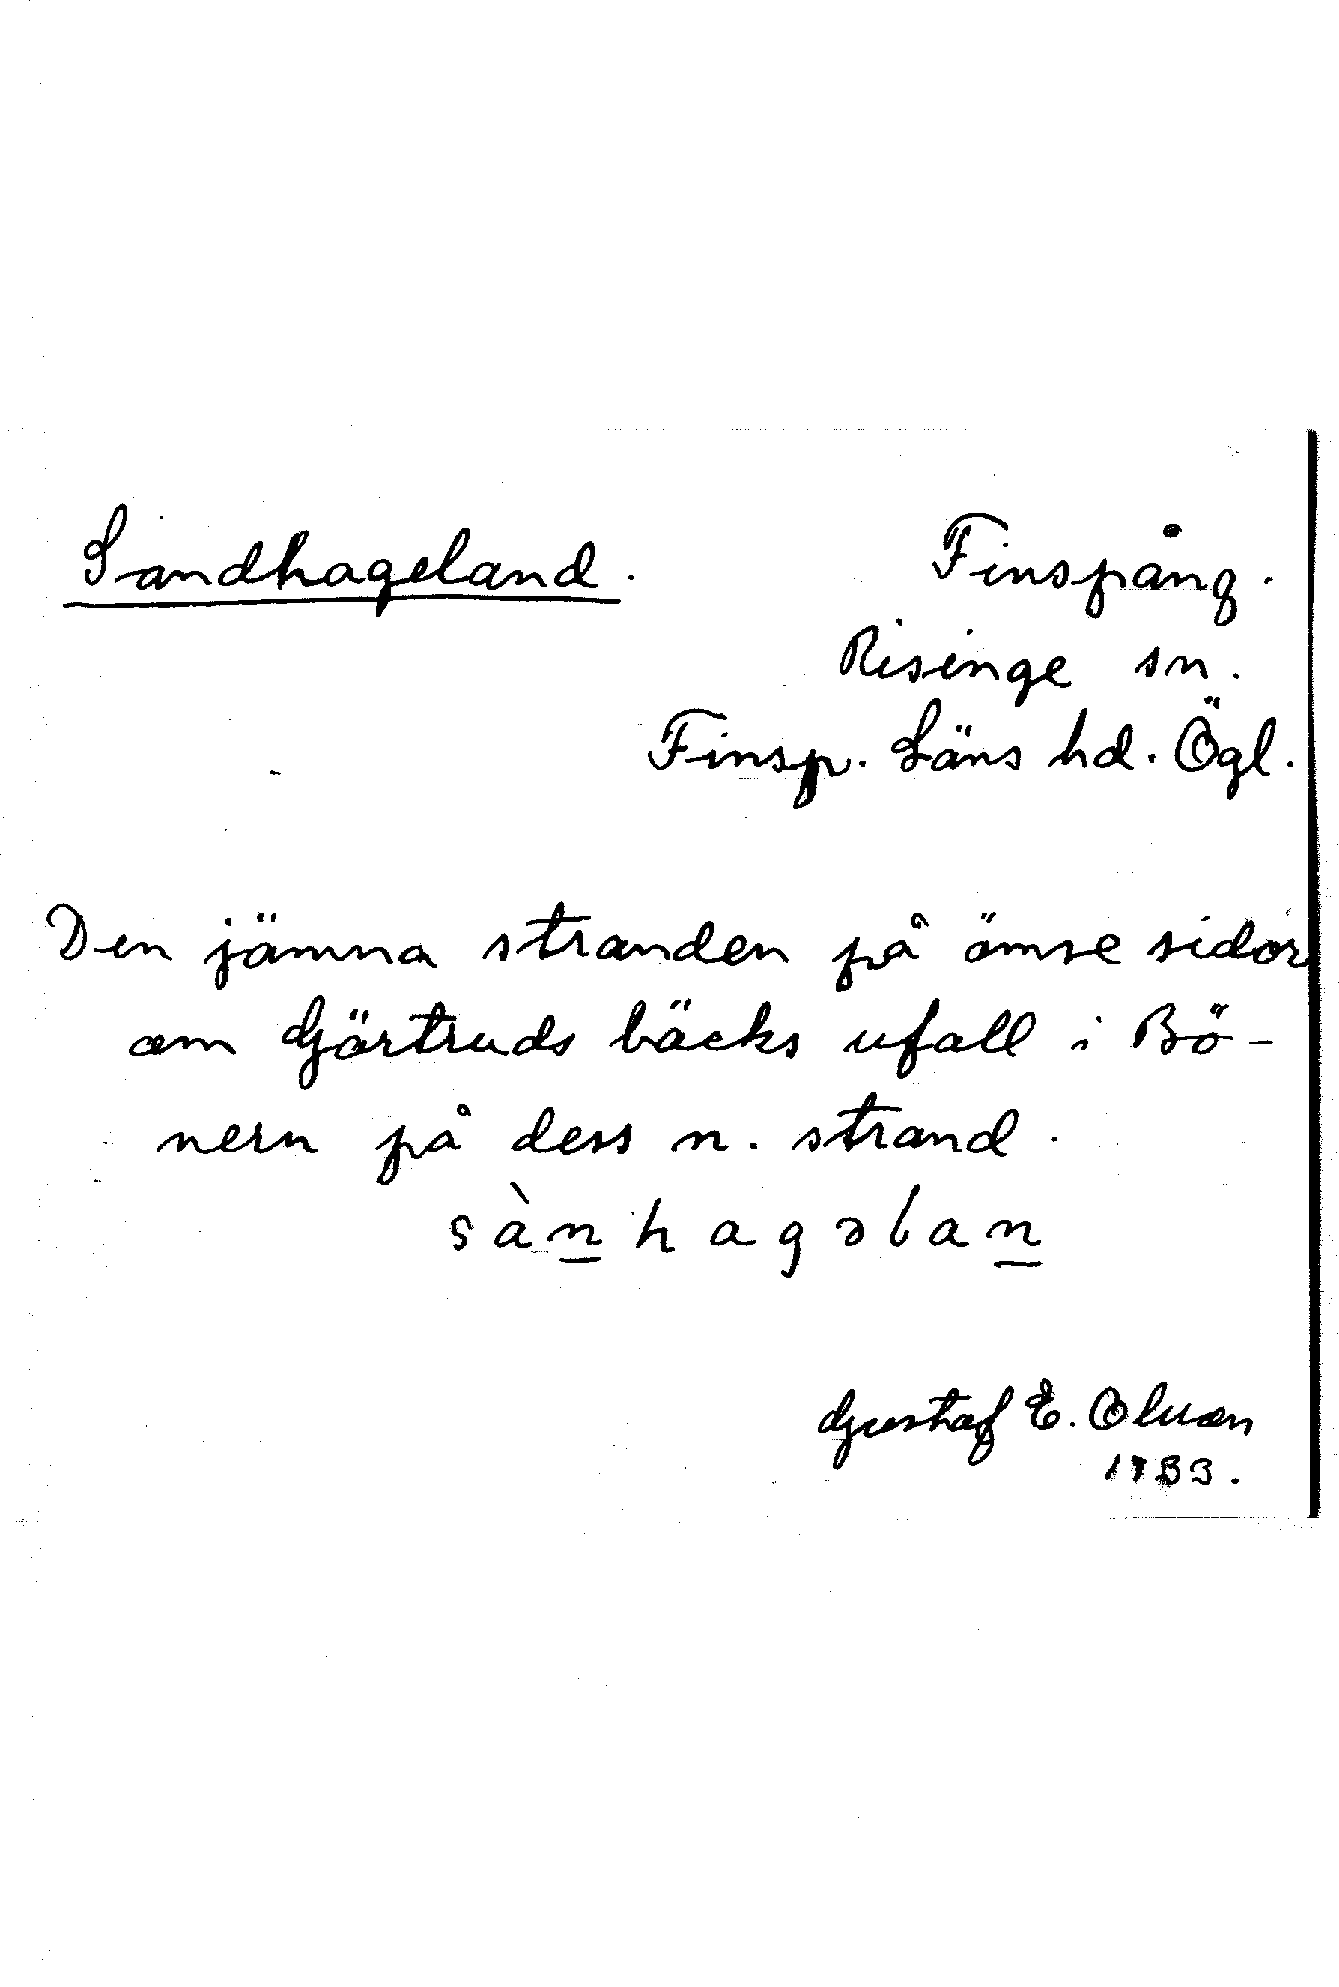 Sandhageland.
Finspång.
Risinge sn.
Finsp. Läns hd. Ögl.
Den jämna stranden på ömse sidor
om Gjörtruds bäcks ufall i Bö-
nern på dess n. strand.
sànhagəlan
Gustaf E. Olsson
1933.